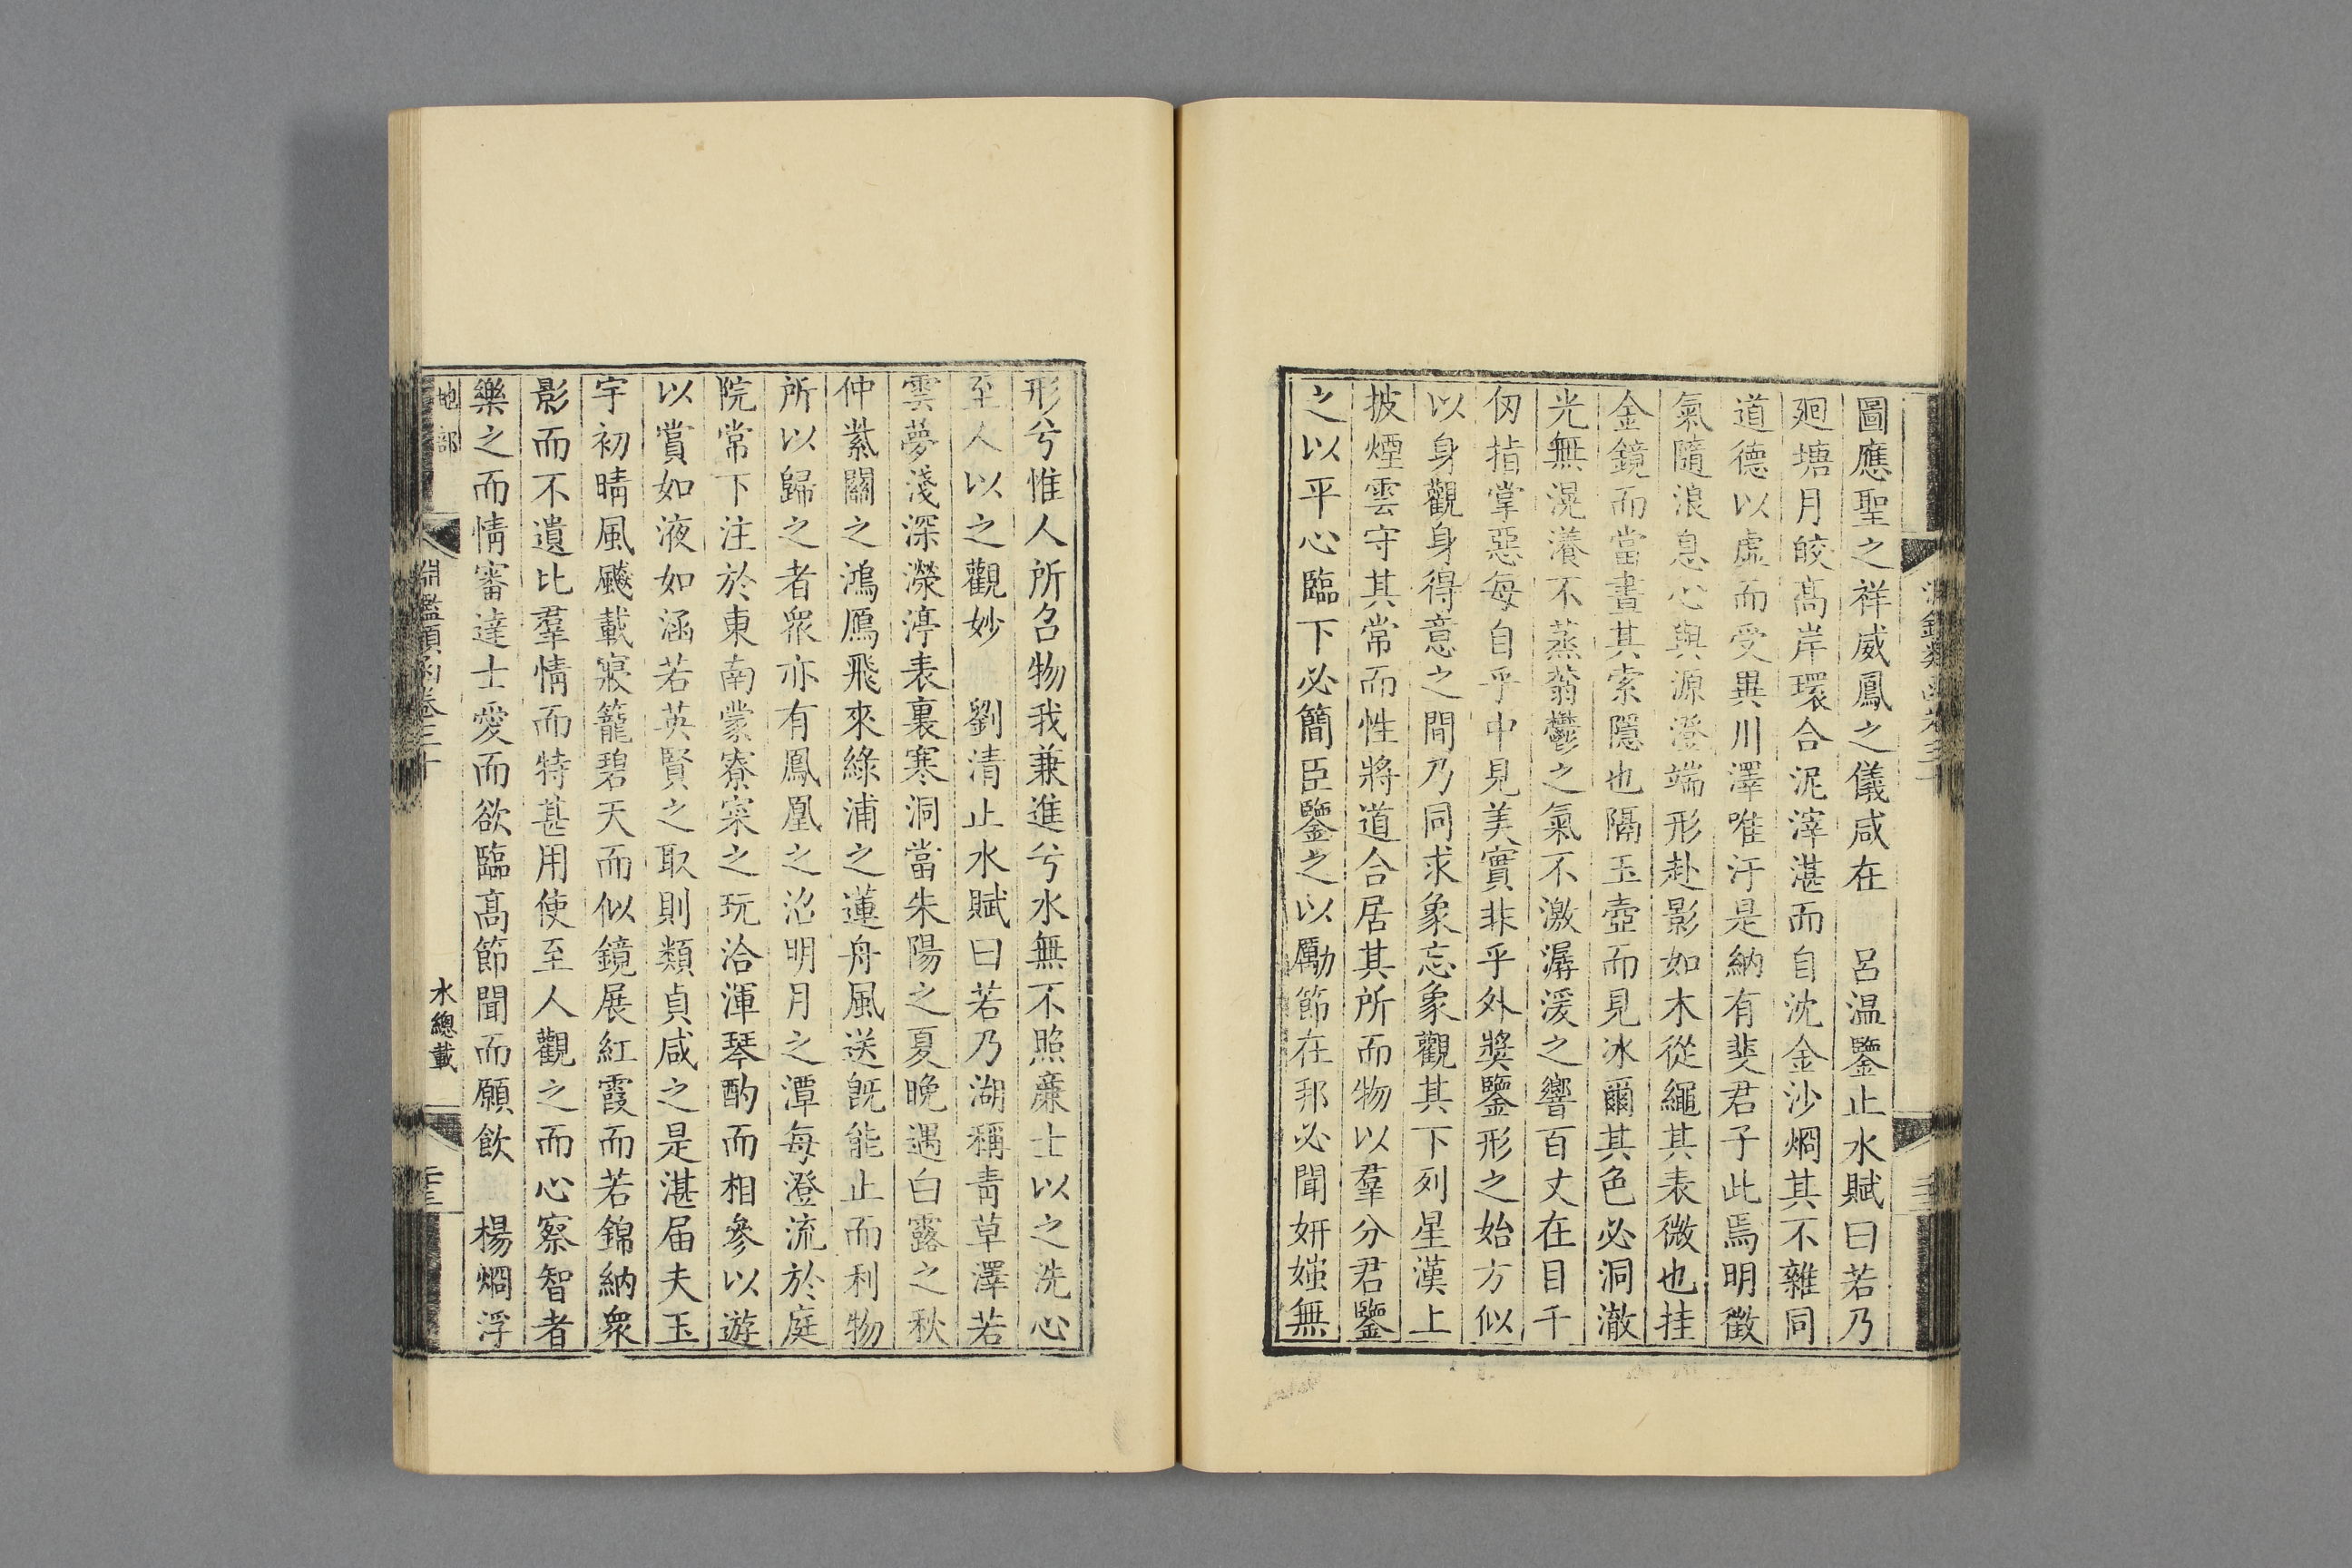 圖應聖之祥威鳳之儀咸在　呂温鑒止水賦曰若乃
廻塘月皎髙岸環合泥滓湛而自沈金沙烱其不雜同
道德以虛而受異川澤唯汙是納有斐君子此焉明徵
氣隨浪息心與源澄端形赴影如木從繩其表微也挂
金鏡而當晝其索隱也隔玉壺而見冰爾其色必洞澈
光無滉瀁不蒸蓊鬱之氣不激潺湲之響百丈在目千
仞指掌惡每自乎中見美實非乎外獎鑒形之始方似
以身觀身得意之間乃同求象忘象觀其下列星漢上
披煙雲守其常而性將道合居其所而物以羣分君鑒
之以平心臨下必簡臣鑒之以勵節在邦必聞妍媸無
形兮惟人所召物我兼進兮水無不照廉士以之洗心
至人以之觀妙　劉清止水賦曰若乃湖稱青草澤若
雲夢淺深濴渟表裏寒洞當朱陽之夏晩遇白露之秋
仲紫關之鴻鴈飛來綠浦之蓮舟風送旣能止而利物
所以歸之者衆亦有鳳凰之沼明月之潭每澄流於庭
院常下注於東南蒙寮寀之玩洽渾琴酌而相參以遊
以賞如液如涵若英賢之取則類貞咸之是湛届夫玉
宇初晴風飈載寢籠碧天而似鏡展紅霞而若錦納衆
影而不遺比羣情而特甚用使至人觀之而心察智者
樂之而情審達士愛而欲臨髙節聞而願飲　楊烱浮
地部
淵鑑類函卷三十
水總載